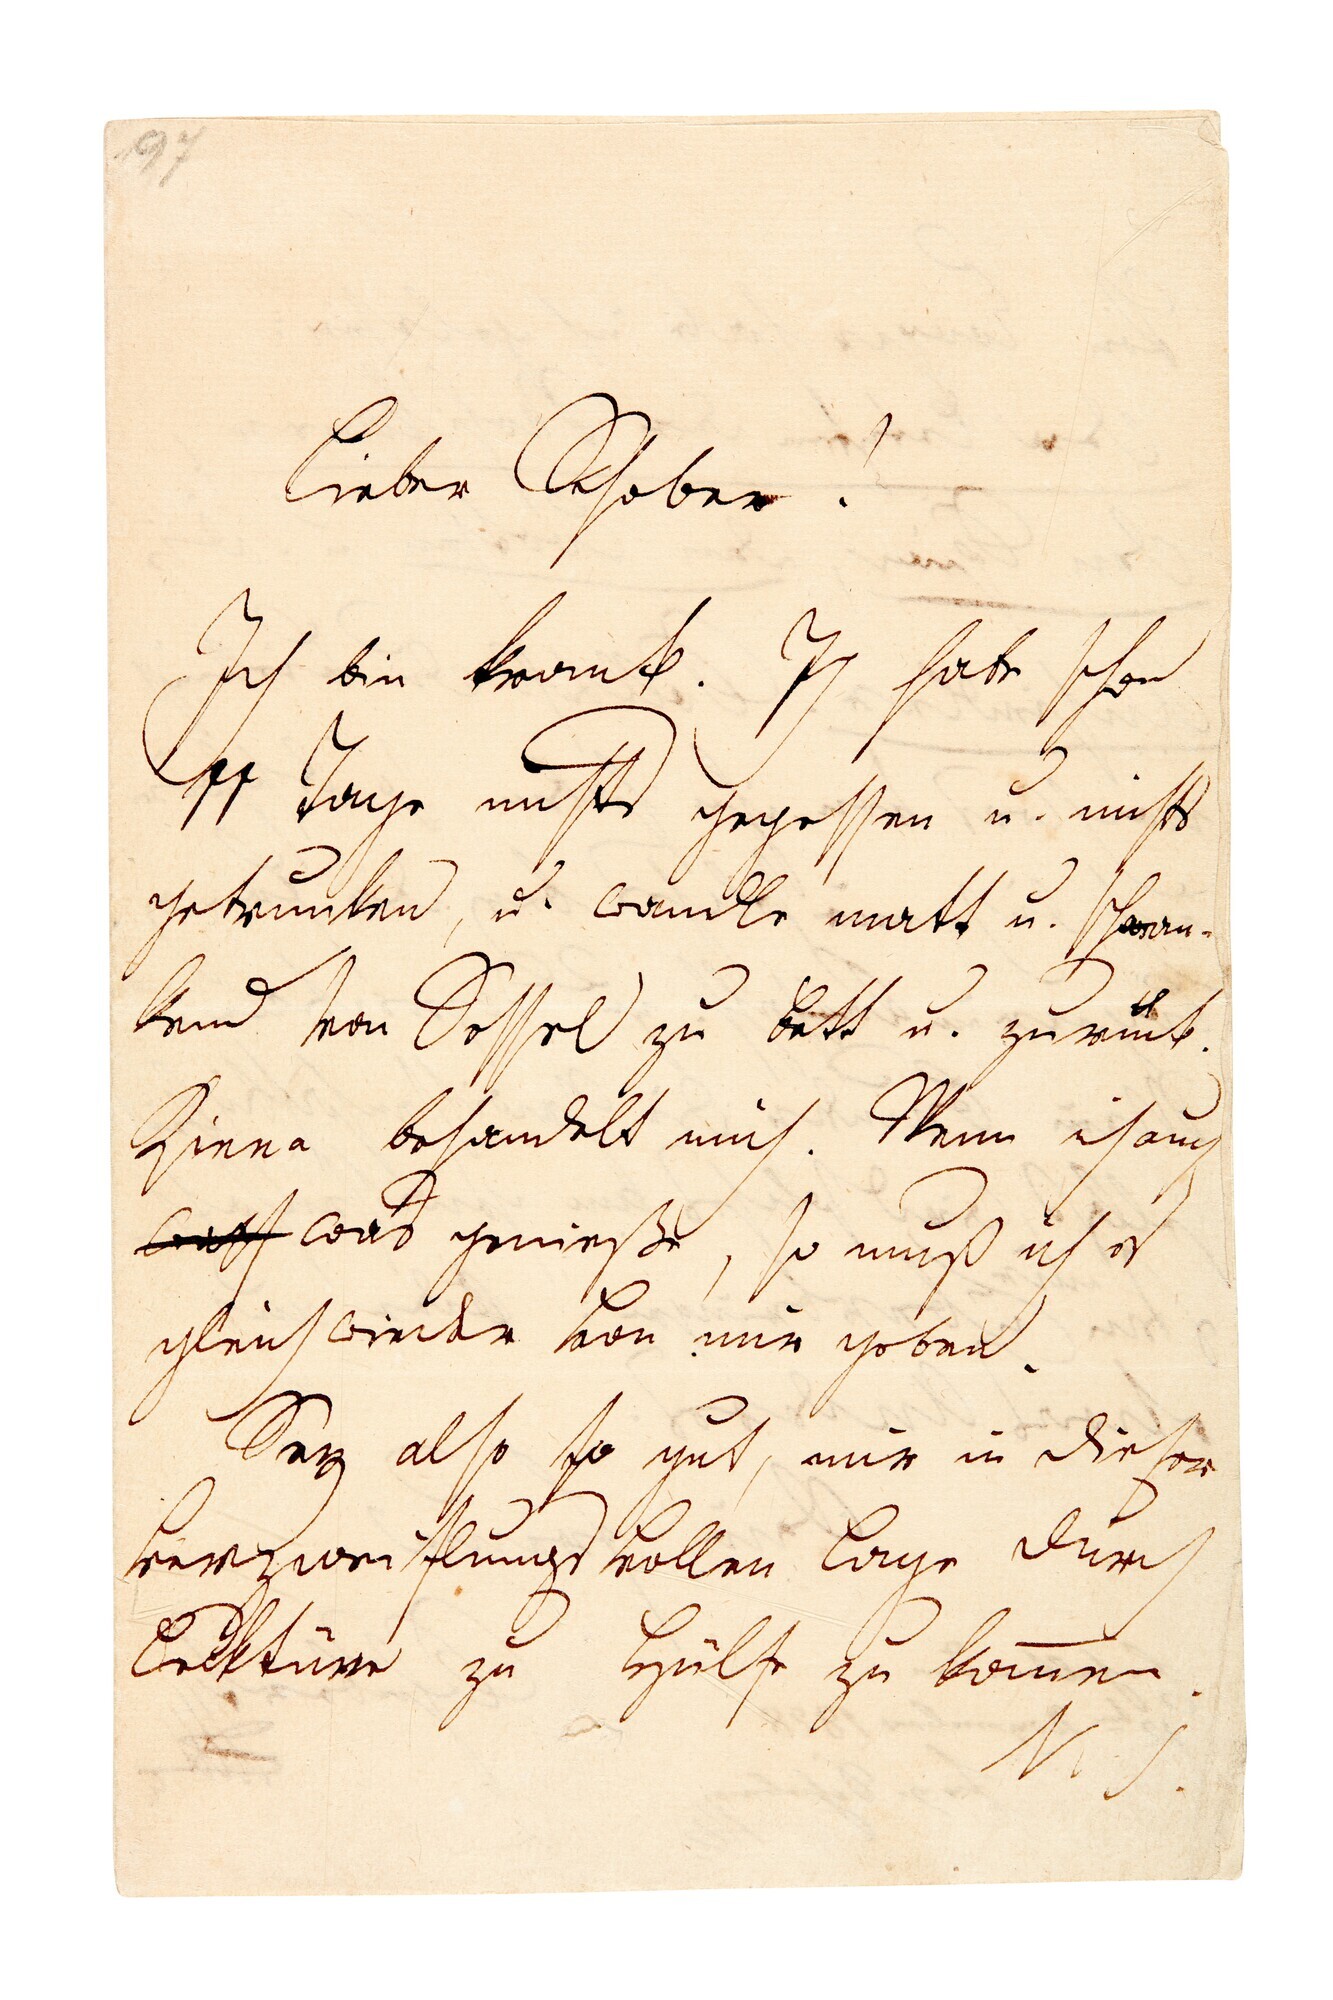 97
Lieber Schober!
Ich bin krank. Ich habe schon
11 Tage nichts gegessen u. nichts
getrunken, u. wandle matt u. schwan-
kend von Sessel zu Bett u. zurück.
Rinna behandelt mich. Wenn ich auch
was genieße, so muß ich es
gleich wieder von mir geben.
Sey also so gut, mir in dieser
verzweiflungsvollen Lage durch
Lecktüre zu Hülfe zu kommen.